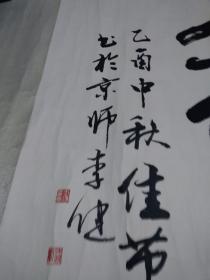 乙酉中秋佳节
书於京师李健